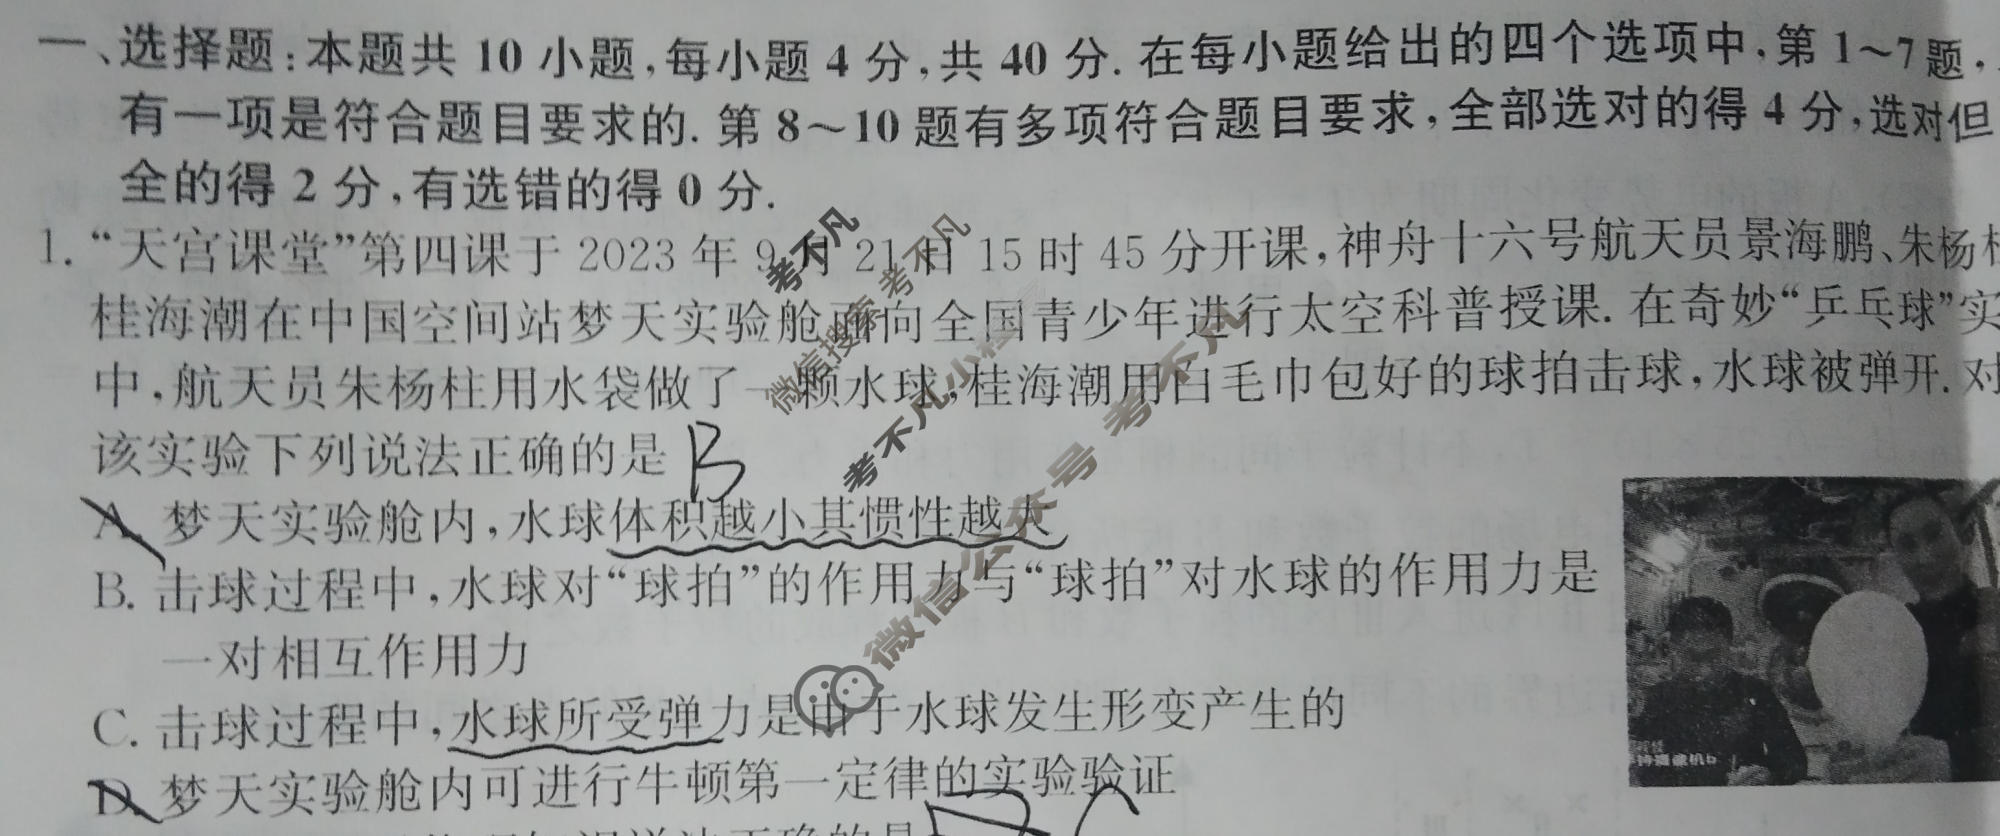 一、选择题：本题共 10 小题，每小题 4 分，共 40 分. 在每小题给出的四个选项中，第 1～7 题，
有一项是符合题目要求的. 第 8～10 题有多项符合题目要求，全部选对的得 4 分，选对但
全的得 2 分，有选错的得 0 分.
1. “天宫课堂”第四课于 2023 年 9 月 21 日 15 时 45 分开课，神舟十六号航天员景海鹏、朱杨柱
桂海潮在中国空间站梦天实验舱面向全国青少年进行太空科普授课. 在奇妙“乒乓球”实
中，航天员朱杨柱用水袋做了一颗水球，桂海潮用白毛巾包好的球拍击球，水球被弹开. 对
该实验下列说法正确的是 B
A. 梦天实验舱内，水球体积越小其惯性越大
B. 击球过程中，水球对“球拍”的作用力与“球拍”对水球的作用力是
一对相互作用力
C. 击球过程中，水球所受弹力是由于水球发生形变产生的
D. 梦天实验舱内可进行牛顿第一定律的实验验证
考不凡
微信搜索 考不凡
考不凡小程序
微信公众号 考不凡